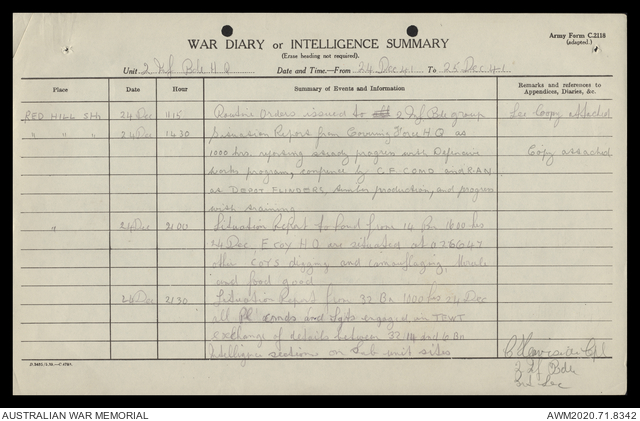 Army Form C.2118
(adapted.)
WAR DIARY or INTELLIGENCE SUMMARY
(Erase heading not required).
Unit 2 Inf Bde H Q Date and Time.—From 24 Dec 41 To 25 Dec 41
Place Date Hour Summary of Events and Information Remarks and references to Appendices, Diaries, &c.
RED HILL Sth 24 Dec 1115 Routine Orders issued to 2 Inf Bde group See Copy attached
" " " 24 Dec 1430 Situation Report from Covering Force H.Q. as
1000 hrs. reporting steady progress with Defensive Copy attached
works program, conference by C.F. COMD and
as DEPOT FLINDERS, timber production, and progress
with training
" 24 Dec 2100 Situation Report to hand from 14 Bn 1600 hrs
24 Dec, E coy H.Q are situated at 076647
other coys digging and camouflaging, Morale
and food good
24 Dec 2130 Situation Report from 32 Bn 1000 hrs 24 Dec
all Pl cmnds and Sgts engaged in TEWT
exchange of details between 32/14 and 6 Bn
Intelligence sections on sub unit sites
Cpl
2 Inf Bde
Int Sec
AUSTRALIAN WAR MEMORIAL AWM2020.71.8342